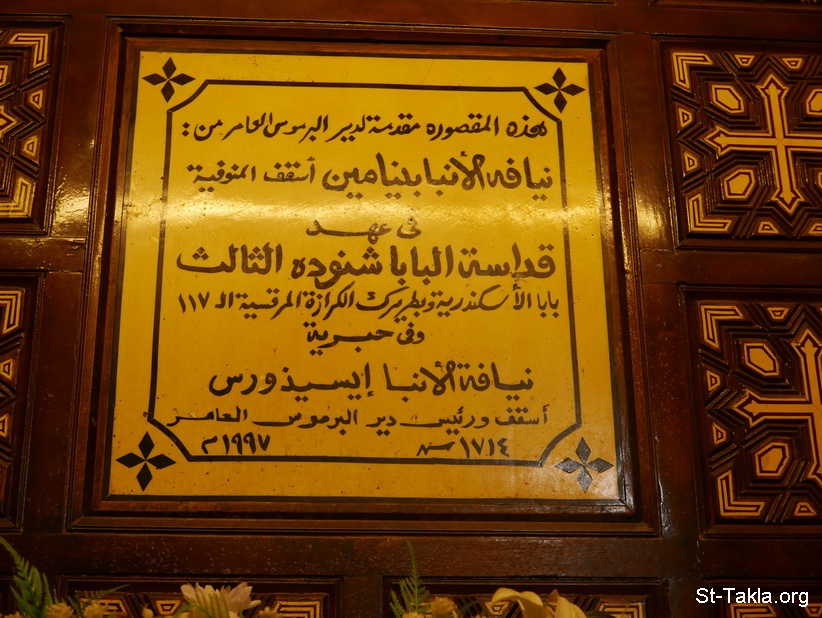 هذه المقصوره مقدمة لدير البرموس العامر من :
نيافة الأنبا بنيامين أسقف المنوفية
فى عهد
قداسة البابا شنوده الثالث
بابا الأسكندرية وبطريرك الكرازة المرقسية الـ ١١٧
وفى حبرية
نيافة الأنبا إيسيذورس
أسقف ورئيس دير البرموس العامر
١٧١٤ سنه ١٩٩٧م
St-Takla.org